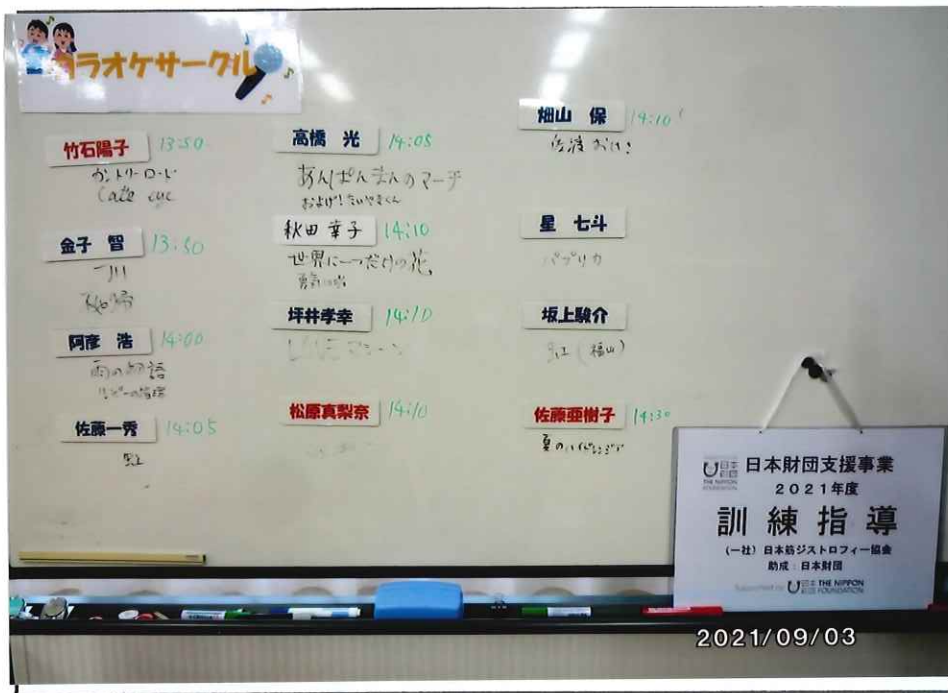 カラオケサークル
竹石陽子 13:50
カントリーロード
Cat's eye
金子 智 13:50
阿彦 浩 14:00
雨の物語
佐藤一秀 14:05
虹
高橋 光 14:05
あんぱんまんのマーチ
およげ!たいやきくん
秋田幸子 14:10
世界に一つだけの花
坪井孝幸 14:10
松原真梨奈 14:10
畑山 保 14:10
佐渡おけさ
星 七斗
パプリカ
坂上駿介
虹(福山)
佐藤亜樹子 14:30
日本財団 日本財団支援事業
THE NIPPON FOUNDATION
2021年度
訓練指導
(一社)日本筋ジストロフィー協会
助成:日本財団
Supported by 日本財団 THE NIPPON FOUNDATION
2021/09/03